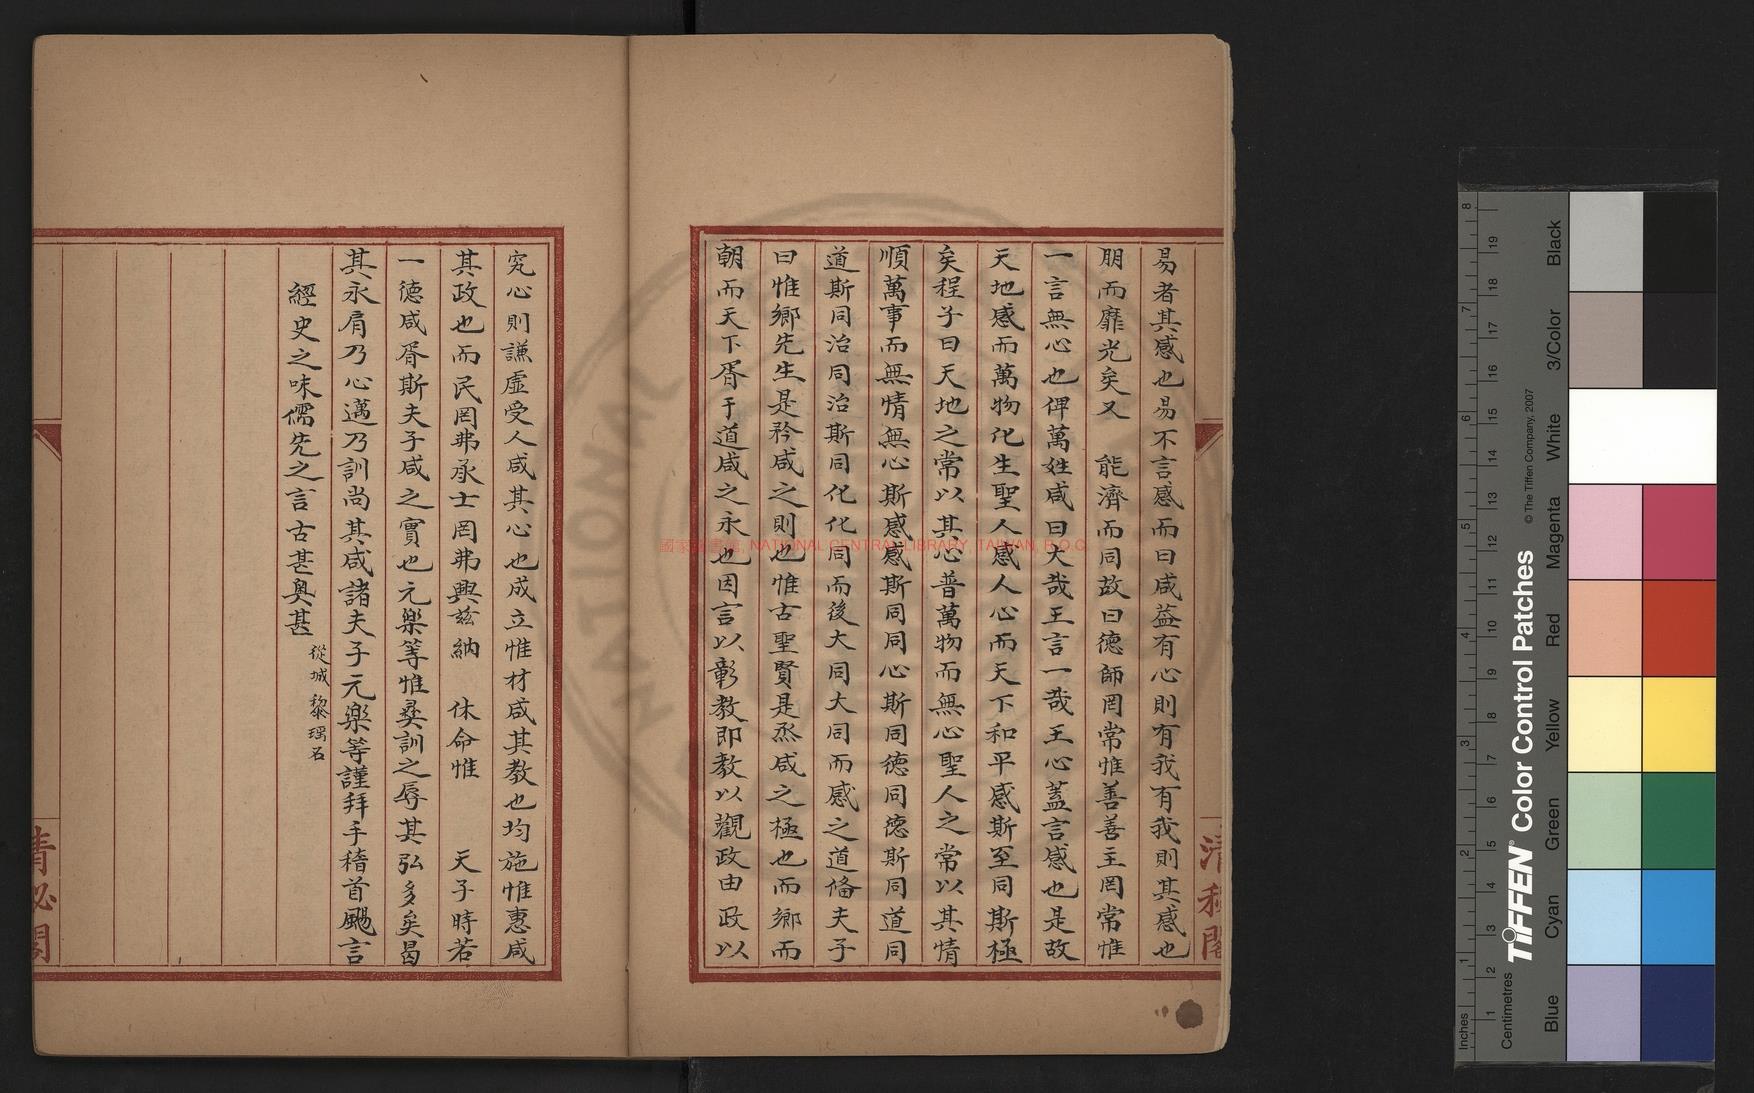 易者其感也易不言感而曰咸益有心則有我有我則其感也
朋而靡光矣又　能濟而同故曰德師罔常惟善善主罔常惟
一言無心也俾萬姓咸曰大哉王言一哉王心蓋言感也是故
天地感而萬物化生聖人感人心而天下和平感斯至同斯極
矣程子曰天地之常以其心普萬物而無心聖人之常以其情
順萬事而無情無心斯感感斯同同心斯同德同德斯同道同
道斯同治同治斯同化化同而後大同大同而感之道俻夫子
曰惟鄉先生是矜咸之則也惟古聖賢是烝咸之極也而鄉而
朝而天下胥于道咸之永也因言以彰教即教以觀政由政以
究心則謙虛受人咸其心也成立惟材咸其教也均施惟惠咸
其政也而民罔弗承士罔弗興茲納　休命惟　天子時若
一德咸胥斯夫子咸之實也元樂等惟彜訓之辱其弘多矣曷
其永肩乃心邁乃訓尚其咸諸夫子元樂等謹拜手稽首颺言
經史之味儒先之言古甚奧甚
從城黎瑶石
清秘閣
清秘閣
國家圖書館, NATIONAL CENTRAL LIBRARY, TAIWAN, R.O.C.
NATIONAL
TIFFEN® Color Control Patches
© The Tiffen Company, 2007
Inches
1 2 3 4 5 6 7 8
Centimetres
1 2 3 4 5 6 7 8 9 10 11 12 13 14 15 16 17 18 19
Blue
Cyan
Green
Yellow
Red
Magenta
White
3/Color
Black